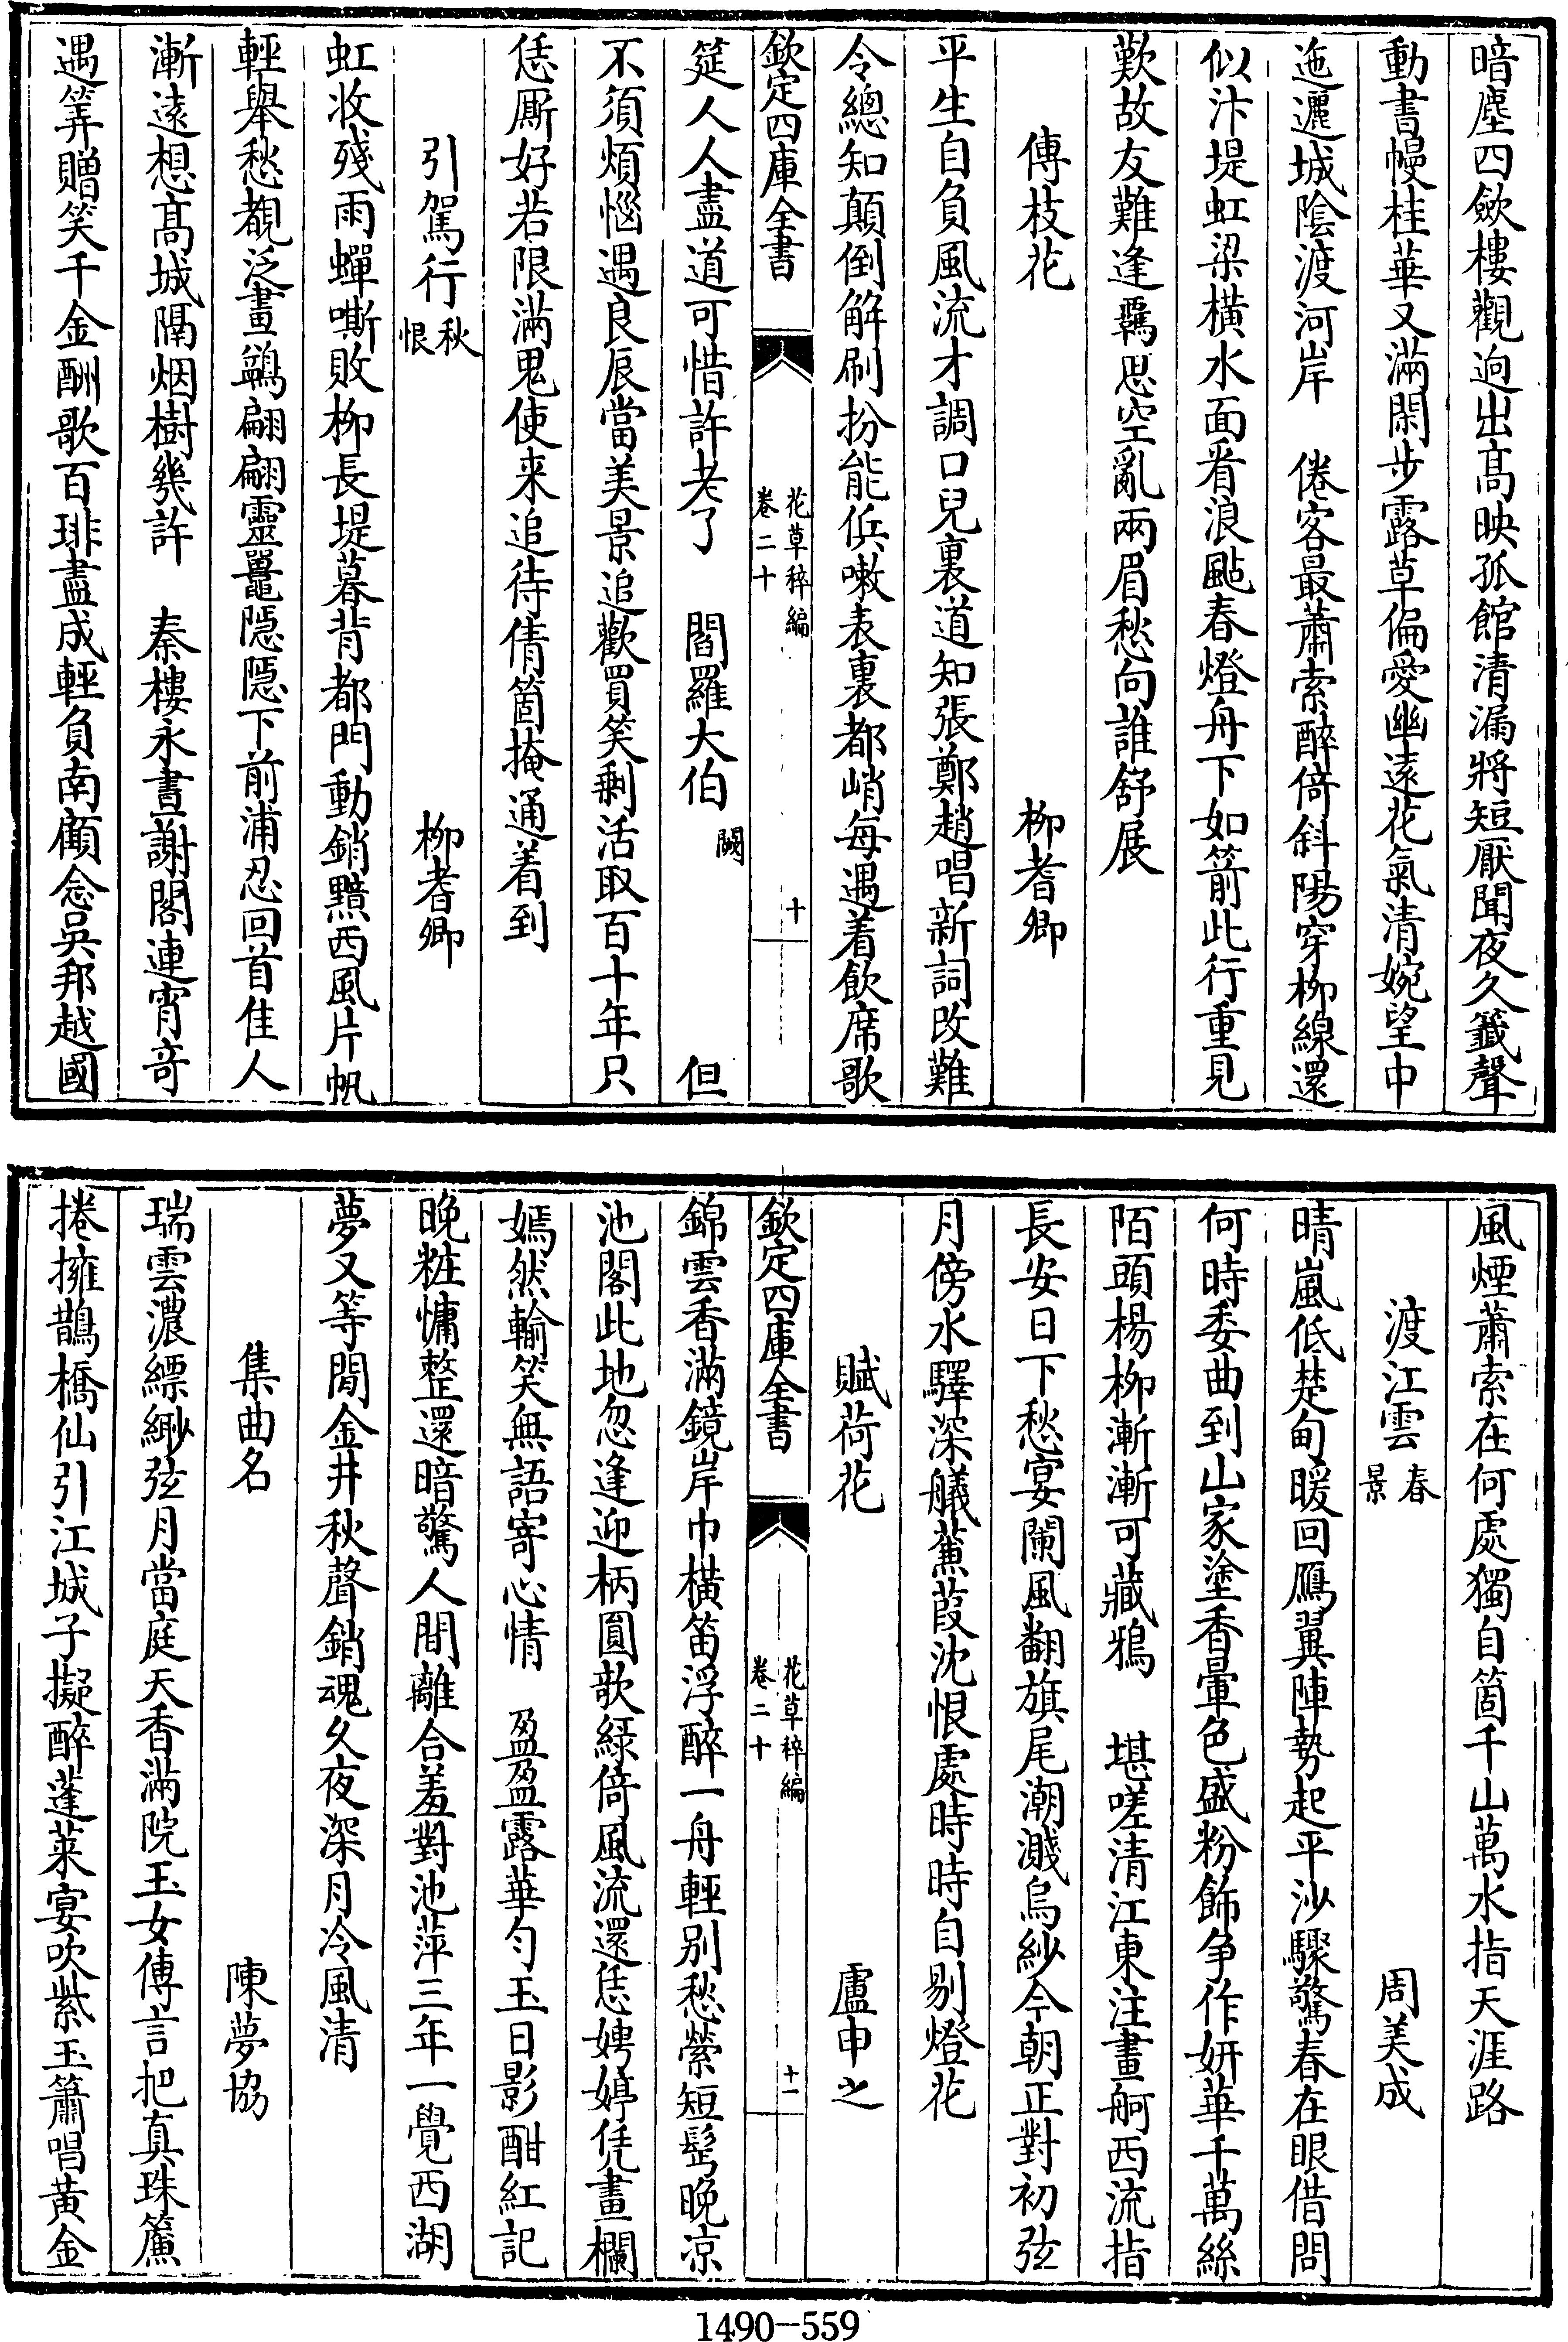 暗塵四歛樓觀迥出高映孤館清漏將短厭聞夜久籤聲
動書幔桂華又滿閑步露草偏愛幽遠花氣清婉望中
迤邐城陰渡河岸　倦客最蕭索醉倚斜陽穿柳線還
似汴堤虹梁橫水面看浪颭春燈舟下如箭此行重見
歎故友難逢羈思空亂兩眉愁向誰舒展
傳枝花　柳耆卿
平生自負風流才調口兒裏道知張鄭趙唱新詞改難
令總知顛倒解刷扮能㑂嗽表裏都峭每遇着飲席歌
欽定四庫全書　花草稡編　卷二十　十
筵人人盡道可惜許老了　閻羅大伯闕　但
不須煩惱遇良辰當美景追歡買笑剩活取百十年只
恁厮好若限滿鬼使来追待倩箇掩通着到
引駕行秋恨　柳耆卿
虹收殘雨蟬嘶敗柳長堤暮背都門動銷黯西風片帆
輕舉愁覩泛畫鷁翩翩靈鼉隱隱下前浦忍回首佳人
漸遠想高城隔烟樹幾許　秦樓永晝謝閣連宵奇
遇筭贈笑千金酬歌百琲盡成輕負南顧念吳邦越國
風煙蕭索在何處獨自箇千山萬水指天涯路
渡江雲春景　周美成
晴嵐低楚甸暖回鴈翼陣勢起平沙驟驚春在眼借問
何時委曲到山家塗香暈色盛粉飾争作妍華千萬絲
陌頭楊柳漸漸可藏鴉　堪嗟清江東注畫舸西流指
長安日下愁宴闌風翻旗尾潮濺烏紗今朝正對初弦
月傍水驛深艤蒹葭沈恨處時時自剔燈花
賦荷花　盧申之
欽定四庫全書　花草稡編　卷二十　十一
錦雲香滿鏡岸巾橫笛浮醉一舟輕别愁縈短髩晚凉
池閣此地忽逢迎柄圓欹緑倚風流還恁娉婷凭畫欄
嫣然輸笑無語寄心情　盈盈露華勻玉日影酣紅記
晚粧慵整還暗驚人間離合羞對池萍三年一覺西湖
夢又等閒金井秋聲銷魂久夜深月冷風清
集曲名　陳夢協
瑞雲濃縹緲弦月當庭天香滿院玉女傅言把真珠簾
捲擁鵲橋仙引江城子擬醉蓬萊宴吹紫玉簫唱黄金
1490-559